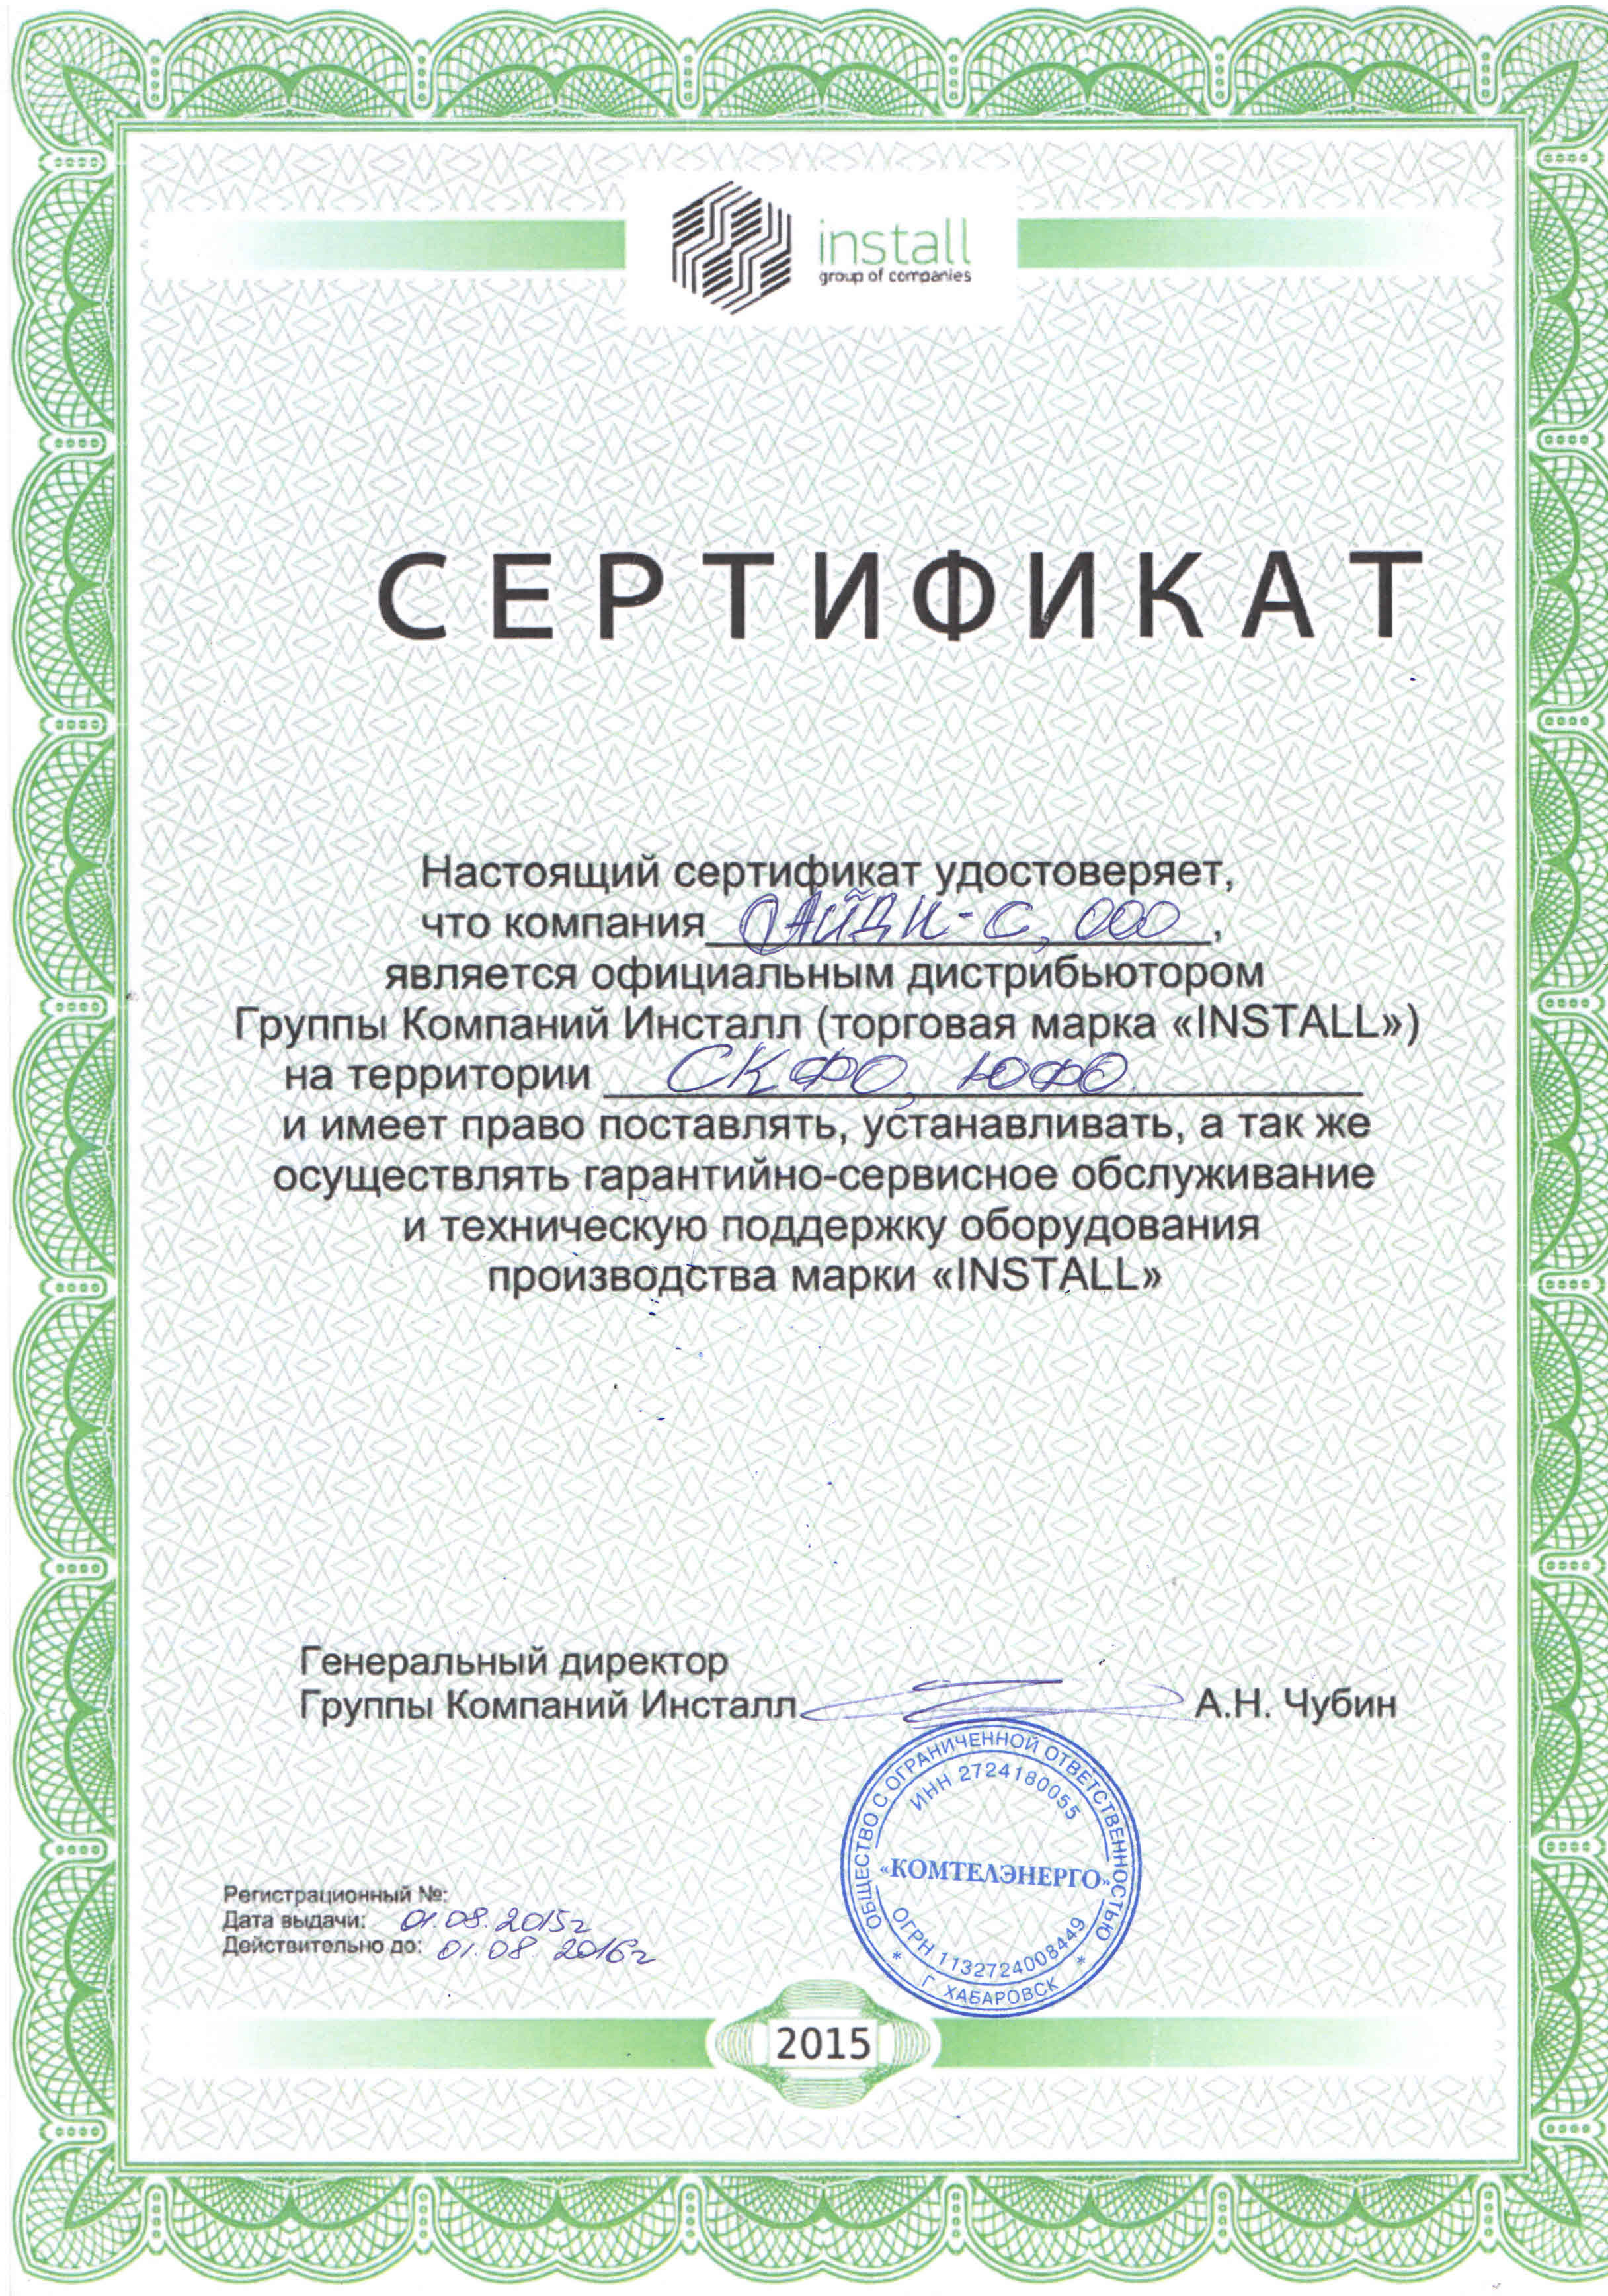 install
group of companies
СЕРТИФИКАТ
Настоящий сертификат удостоверяет,
что компания АЙДИ-С, ООО,
является официальным дистрибьютором
Группы Компаний Инсталл (торговая марка «INSTALL»)
на территории СКФО, ЮФО
и имеет право поставлять, устанавливать, а так же
осуществлять гарантийно-сервисное обслуживание
и техническую поддержку оборудования
производства марки «INSTALL»
Генеральный директор
Группы Компаний Инсталл А.Н. Чубин
ОБЩЕСТВО С ОГРАНИЧЕННОЙ ОТВЕТСТВЕННОСТЬЮ
ИНН 2724180055
«КОМТЕЛЭНЕРГО»
ОГРН 1132724008449
* Г. ХАБАРОВСК *
Регистрационный №:
Дата выдачи: 01.08.2015г
Действительно до: 01.08.2016г
2015